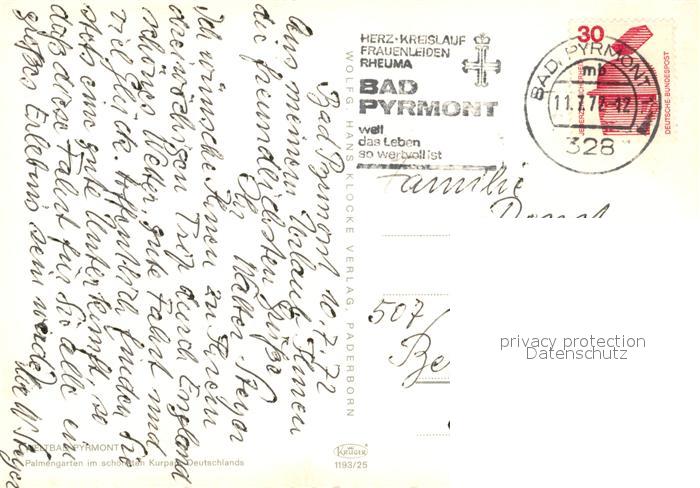 Bad Pyrmont 10.7.72
Aus meinem Urlaub Ihnen
die freundlichsten Grüße
Ihr Walter Steyer
Ich wünsche Ihnen zu Ihrem
dreiwöchigen Trip durch England
schönes Wetter, gute Fahrt und
viel Glück. Hoffentlich finden Sie
stets eine gute Unterkunft, so
daß diese Fahrt für Sie alle ein
großes Erlebnis sein werde.
WELTBAD PYRMONT
Palmengarten im schönsten Kurpark Deutschlands
WOLFG HANS KLOCKE VERLAG, PADERBORN
KRÜGER
1193/25
HERZ-KREISLAUF
FRAUENLEIDEN
RHEUMA
BAD
PYRMONT
weil
das Leben
so wertvoll ist
BAD PYRMONT
mb
11.7.72-12
328
30
JEDERZEIT SICHERHEIT
DEUTSCHE BUNDESPOST
Familie
507
Be
privacy protection
Datenschutz